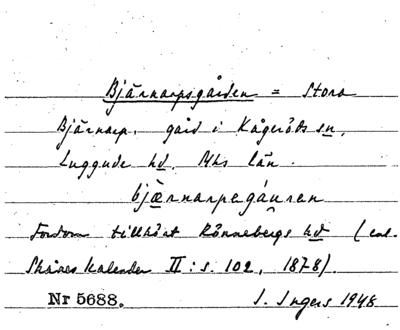 Bjärnarpsgården = Stora
Bjärnarp, gård i Kågeröds sn,
Luggude hd. Mhs län.
bjærnarpsgåuren
Fordom tillhört Rönnebergs hd (enl.
Skånes Kalender II: s. 102, 1878).
Nr 5688. I. Ingers 1948